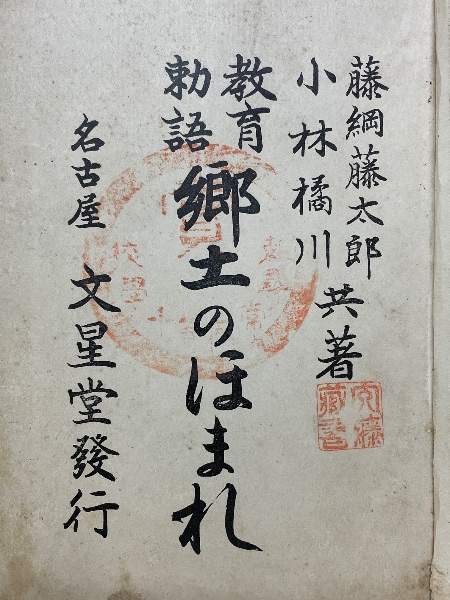 藤綱藤太郎
小林橘川
共著
教育
勅語
郷土のほまれ
名古屋 文星堂發行